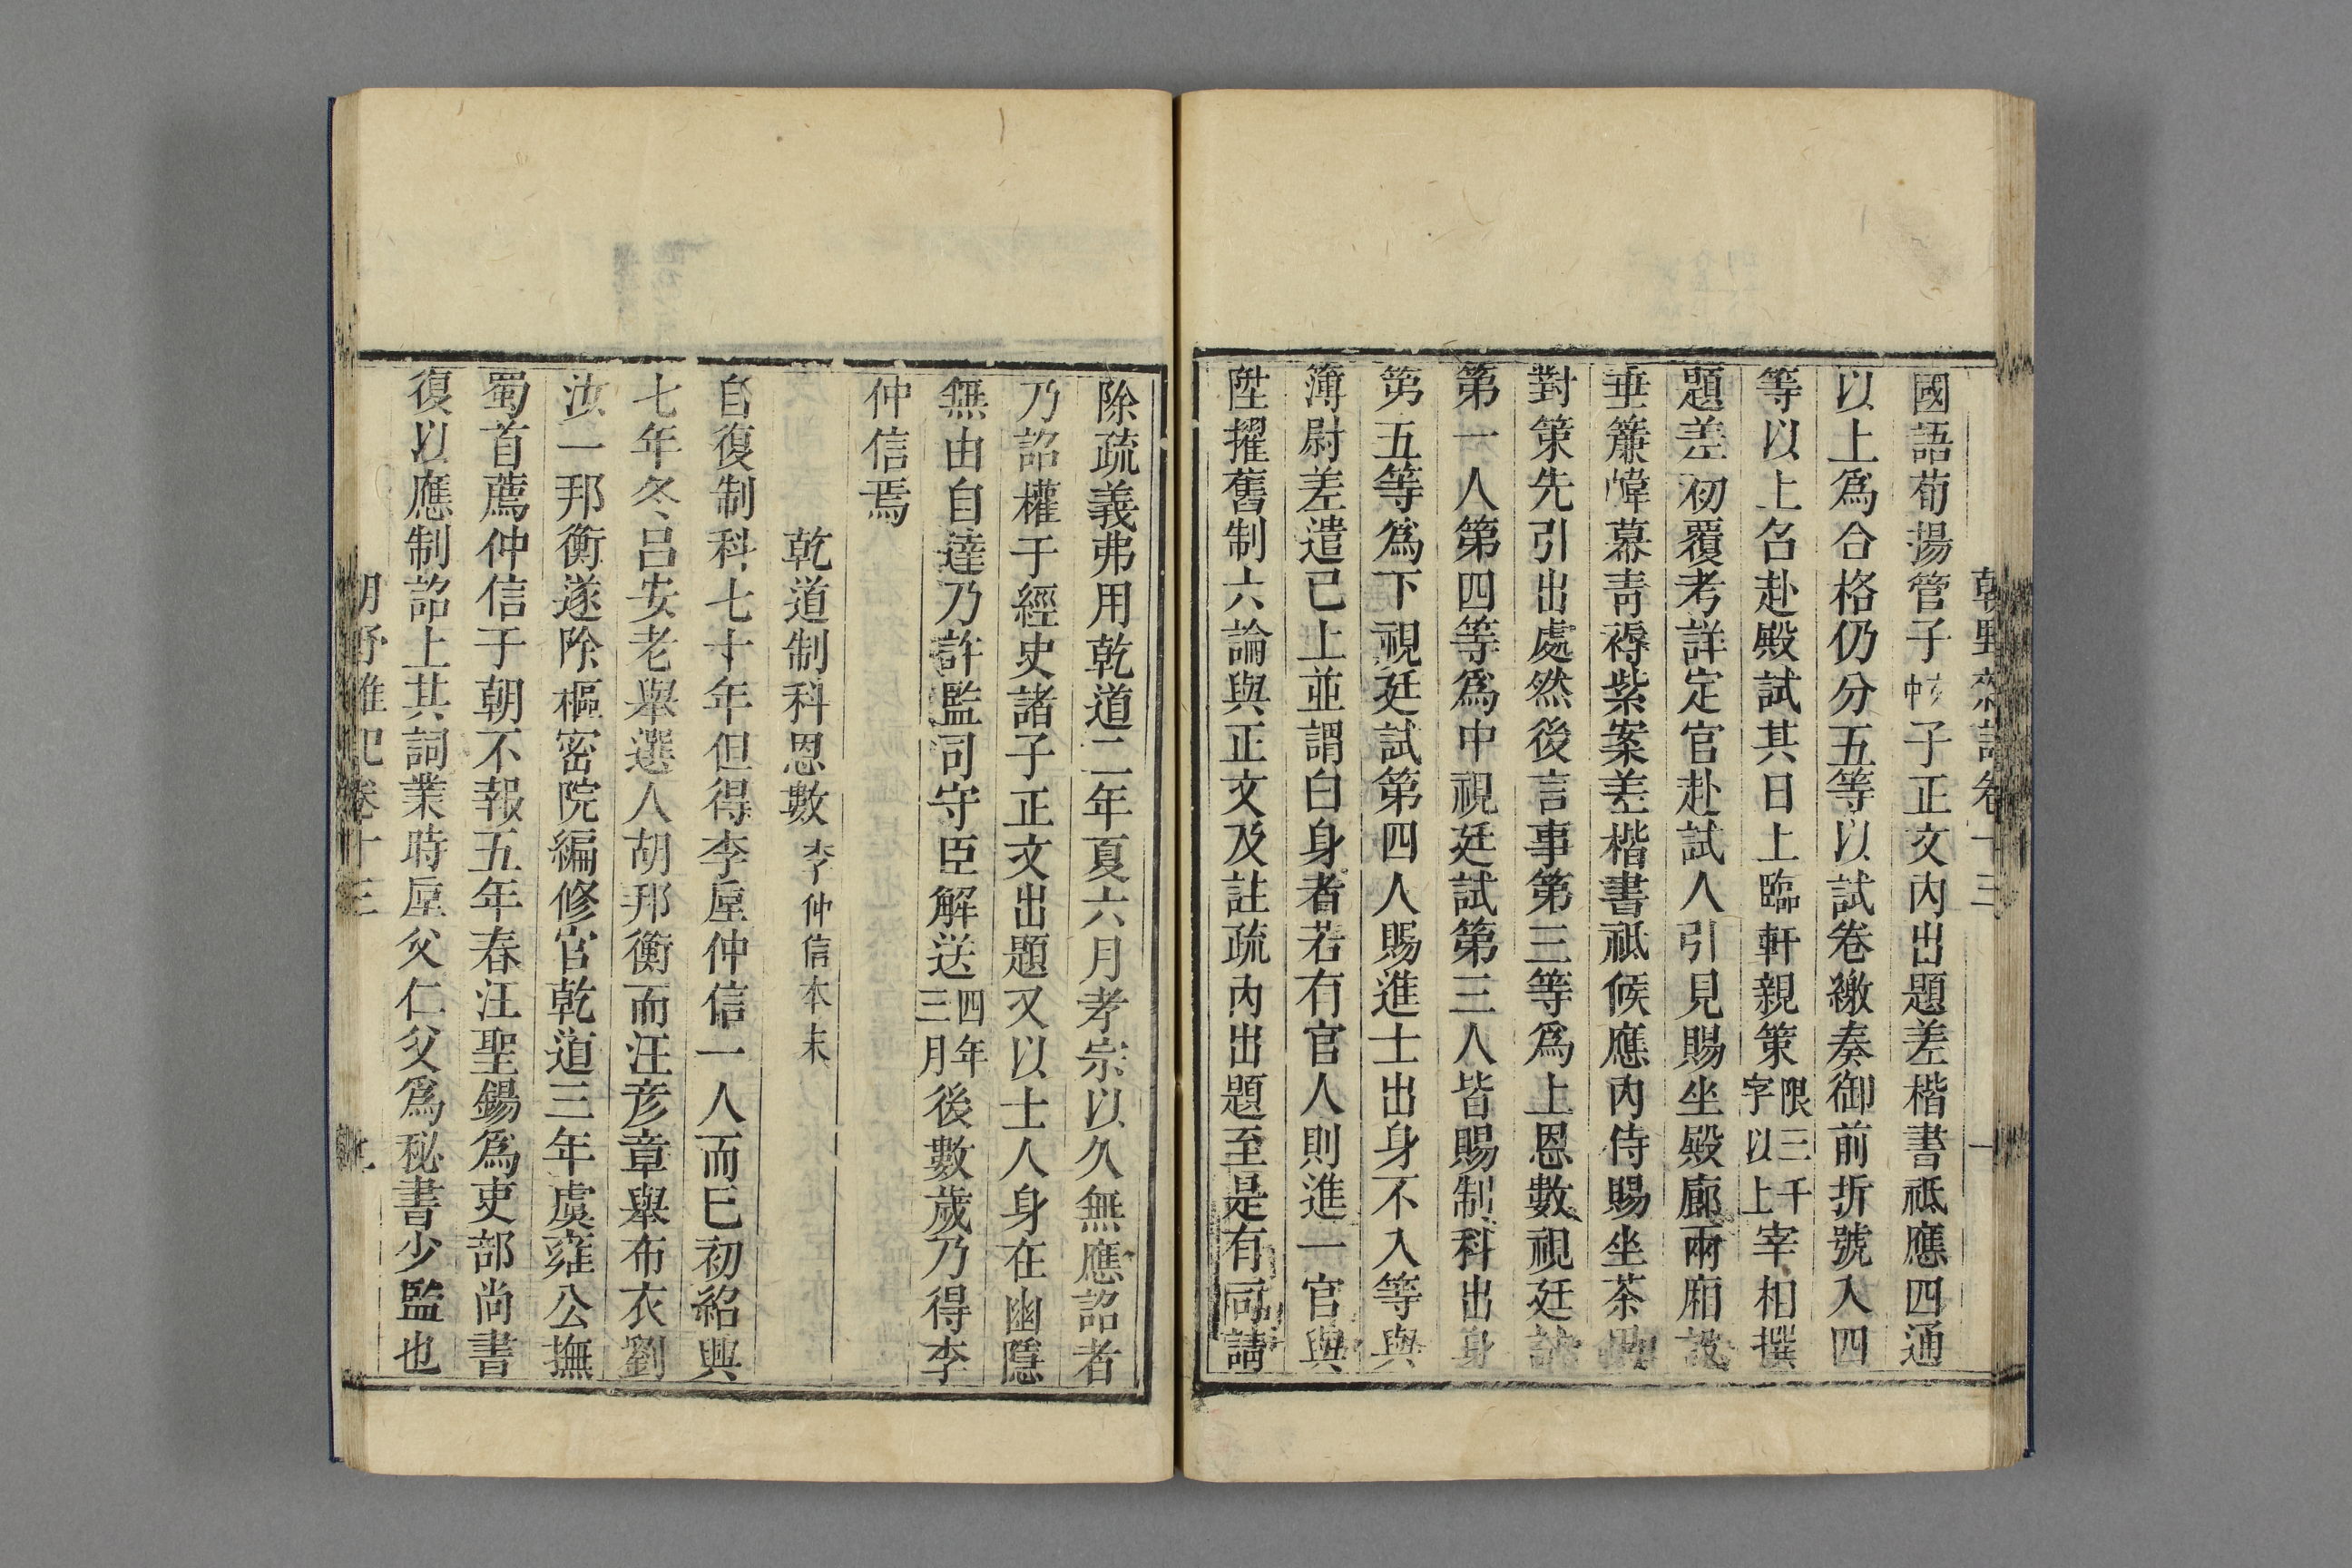 國語荀揚管子中子正文內出題差楷書祗應四通
以上爲合格仍分五等以試卷繳奏御前折號入四
等以上名赴殿試其日上臨軒親策限三千字以上宰相撰
題差初覆考詳定官赴試人引見賜坐殿廊兩廂設
垂簾幃幕青褥紫案差楷書祗候應內侍賜坐茶
對策先引出處然後言事第三等爲上恩數視廷試
第一人第四等爲中視廷試第三人皆賜制科出身
第五等爲下視廷試第四人賜進士出身不入等與
簿尉差遣已上並謂白身者若有官人則進一官與
陞擢舊制六論與正文及註疏內出題至是有司請
除疏義弗用乾道二年夏六月孝宗以久無應詔者
乃詔權于經史諸子正文出題又以士人身在幽隱
無由自達乃許監司守臣解送四年三月後數歲乃得李
仲信焉
乾道制科恩數 李仲信本末
自復制科七十年但得李垕仲信一人而已初紹興
七年冬呂安老舉選人胡邦衡而汪彦章舉布衣劉
汝一邦衡遂除樞密院編修官乾道三年虞雍公撫
蜀首薦仲信于朝不報五年春汪聖錫爲吏部尚書
復以應制詔上其詞業時垕父仁父爲秘書少監也